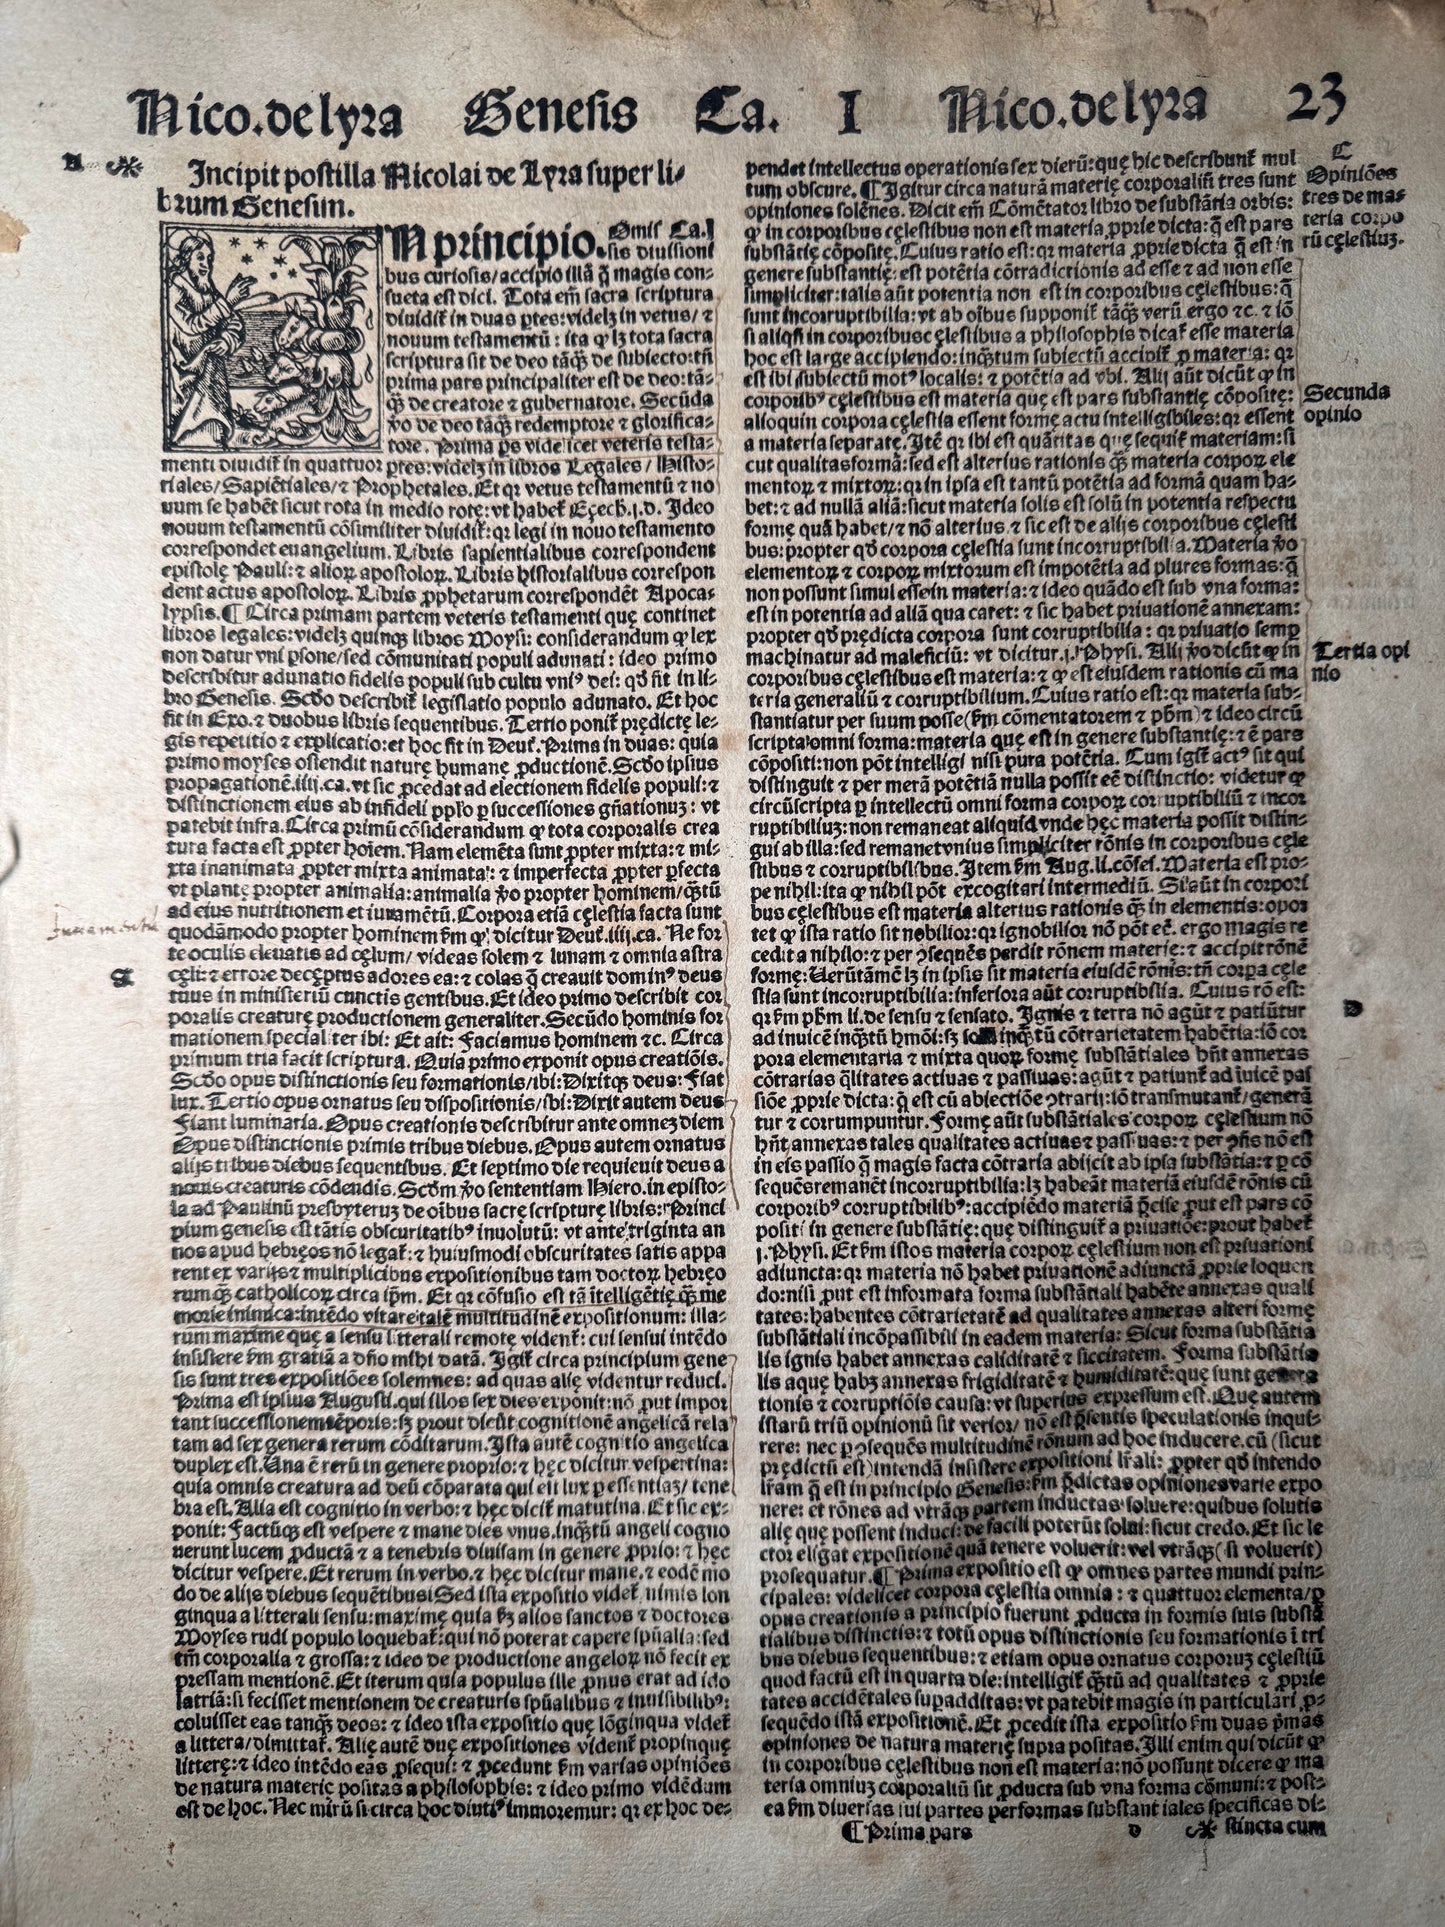 Nico.de lyra Genesis Ca. I Nico.de lyra 23
Incipit postilla Nicolai de Lyra super li-
brum Genesim.
IN principio. Omis. Ca.I
sis diuisioni
bus curiosis/accipio illā q̄ magis con-
sueta est dici. Tota em̄ sacra scriptura
diuidit̄ in duas ꝑtes: videlꝫ in vetus/ ⁊
nouum testamentū : ita ꝙ lꝫ tota sacra
scriptura sit de deo tāꝗ̄ de subiecto: tn̄
prima pars principaliter est de deo: tā-
ꝗ̄ de creatore ⁊ gubernatore. Secūda
ꝟo de deo tāꝗ̄ redemptore ⁊ glorifica-
tore. Prima ꝑs videlicet veteris testa-
menti diuidit̄ in quattuor ꝑtes: videlꝫ in libros Legales / Histo-
riales/Sapiētiales/⁊ Prophetales. Et qr vetus testamentū ⁊ no
uum se habēt sicut rota in medio rotę: vt habet̄ Eȥech.j.d. Ideo
nouum testamentū cōsimiliter diuidit̄: qr legi in nouo testamento
correspondet euangelium. Libris sapientialibus correspondent
epistolę Pauli: ⁊ alioꝝ apostoloꝝ. Libris historialibus correspon
dent actus apostoloꝝ. Libris ꝓphetarum correspondēt Apoca-
lypsis. ¶ Circa primam partem veteris testamenti quę continet
libros legales: videlꝫ quinqꝫ libros Moysi: considerandum ꝙ lex
non datur vni ꝑsone/sed cōmunitati populi adunati : ideo primo
describitur adunatio fidelis populi sub cultu vniꝰ dei: qđ fit in li-
bro Genesis. Scđo describit̄ legislatio populo adunato. Et hoc
fit in Exo. ⁊ duobus libris sequentibus. Tertio ponit̄ prędictę le-
gis repetitio ⁊ explicatio: et hoc fit in Deut̄. Prima in duas: quia
primo moyses ostendit naturę humanę ꝓductionē. Scđo ipsius
propagationē.iiij.ca. vt sic ꝓcedat ad electionem fidelis populi: ⁊
distinctionem eius ab infideli ppl̄o ꝑ successiones gn̄ationuꝫ : vt
patebit infra. Circa primū cōsiderandum ꝙ tota corporalis crea
tura facta est ꝓpter hoīem. Nam elemēta sunt ꝓpter mixta: ⁊ mi-
xta inanimata ꝓpter mixta animata: ⁊ imperfecta ꝓpter ꝑfecta
vt plantę propter animalia: animalia ꝟo propter hominem/ꝗ̄tū
ad eius nutritionem et iuuamētū. Corpora etiā cęlestia facta sunt
quodāmodo propter hominem ẜm ꝙ dicitur Deut̄.iiij.ca. Ne for
te oculis eleuatis ad cęlum/ videas solem ⁊ lunam ⁊ omnia astra
cęli: ⁊ errore decęptus adores ea: ⁊ colas ꝗ̄ creauit dominꝰ deus
tuus in ministeriū cunctis gentibus. Et ideo primo describit̄ cor
poralis creaturę productionem generaliter. Secūdo hominis for
mationem specialiter ibi: Et ait: Faciamus hominem ⁊c. Circa
primum tria facit scriptura. Quia primo exponit opus creatiōis.
Scđo opus distinctionis seu formationis/ibi: Dixitqꝫ deus: Fiat
lux. Tertio opus ornatus seu dispositionis/ibi: Dixit autem deus
Fiant luminaria. Opus creationis describitur ante omneꝫ diem
Opus distinctionis primis tribus diebus. Opus autem ornatus
alijs tribus diebus sequentibus. Et septimo die requieuit deus a
nouis creaturis cōdendis. Scđm ꝟo sententiam Hiero. in episto-
la ad Paulinū presbyteruꝫ de oībus sacrę scripturę libris: Princi
pium genesis est tātis obscuritatibꝰ inuolutū: vt ante triginta an
nos apud hebręos nō legat̄: ⁊ huiusmodi obscuritates satis appa
rent ex varijs ⁊ multiplicibus expositionibus tam doctoꝝ hebręo
rum ꝗ̄ catholicoꝝ circa ip̄m. Et qr cōfusio est tā ītelligētię ꝗ̄ me
morię inimica: intēdo vitare talē multitudinē expositionum: illa-
rum maxime quę a sensu litterali remotę vident̄: cui sensui intēdo
insistere ẜm gratiā a dn̄o mihi datā. Igit̄ circa principium gene
sis sunt tres expositiōes solemnes: ad quas alię videntur reduci.
Prima est ipsius Augusti. qui illos sex dies exponit: nō ꝓut impor
tant successionem tēporis: sꝫ prout dicūt cognitionē angelicā rela
tam ad sex genera rerum cōditarum. Ista autē cognitio angelica
duplex est. Una ē rerū in genere proprio: ⁊ hęc dicitur vespertina:
quia omnis creatura ad deū cōparata qui est lux ꝑ essentiaꝫ/ tene
bra est. Alia est cognitio in verbo: ⁊ hęc dicit̄ matutina. Et sic ex-
ponit: Factūqꝫ est vespere ⁊ mane dies vnus. inꝗ̄tū angeli cogno
uerunt lucem ꝓductā ⁊ a tenebris diuisam in genere ꝓprio: ⁊ hęc
dicitur vespere. Et rerum in verbo. ⁊ hęc dicitur mane. ⁊ eodē mo
do de alijs diebus sequētibus: Sed ista expositio videt̄ nimis lon
ginqua a litterali sensu: maximę quia ẜꝫ alios sanctos ⁊ doctores
Moyses rudi populo loquebat̄: qui nō poterat capere spūalia: sed
tm̄ corporalia ⁊ grossa: ⁊ ideo de productione angeloꝝ nō fecit ex
pressam mentionē. Et iterum quia populus ille ꝓnus erat ad ido
latriā: si fecisset mentionem de creaturis spūalibus ⁊ inuisibilibꝰ:
coluisset eas tanꝗ̄ deos: ⁊ ideo ista expositio quę lōginqua videt̄
a littera/dimittat̄. Alię autē duę expositiones vident̄ propinquę
litterę: ⁊ ideo intēdo eas ꝓsequi: ⁊ ꝓcedunt ẜm varias opiniōes
de natura materię positas a philosophis: ⁊ ideo primo vidēdum
est de hoc. Nec mirū si circa hoc diutiꝰ immoremur: qr ex hoc de-
pendet intellectus operationis sex dierū: quę hic describunt̄ mul
tum obscure. ¶ Igitur circa naturā materię corporaliū tres sunt
opiniones solēnes. Dicit em̄ Cōmētator libro de substātia orbis:
ꝙ in corporibus cęlestibus non est materia ꝓprie dicta: q̄ est pars
substātię cōpositę. Cuius ratio est: qr materia ꝓprie dicta q̄ est in
genere substantię: est potētia cōtradictionis ad esse ⁊ ad non esse
simpliciter: talis aūt potentia non est in corporibus cęlestibus: q̄
sunt incorruptibilia: vt ab oībus supponit̄ tāꝗ̄ verū ergo ⁊c. ⁊ iō
si aliqn̄ in corporibus cęlestibus a philosophis dicat̄ esse materia
hoc est large accipiendo: inꝗ̄tum subiectū accipit̄ ꝓ materia: qr
est ibi subiectū motꝰ localis: ⁊ potētia ad vbi. Alij aūt dicūt ꝙ in
corporibꝰ cęlestibus est materia quę est pars substantię cōpositę:
alioquin corpora cęlestia essent formę actu intelligibiles: qr essent
a materia separatę. Itē qr ibi est quātitas quę sequit̄ materiam: si
cut qualitas formā: sed est alterius rationis ꝗ̄ materia corpoꝝ ele
mentoꝝ ⁊ mixtoꝝ: qr in ipsa est tantū potētia ad formā quam ha-
bet: ⁊ ad nullā aliā: sicut materia solis est solū in potentia respectu
formę quā habet/ ⁊ nō alterius. ⁊ sic est de alijs corporibus cęlesti
bus: propter qđ corpora cęlestia sunt incorruptibilia. Materia ꝟo
elementoꝝ ⁊ corpoꝝ mixtorum est impotētia ad plures formas: q̄
non possunt simul esse in materia: ⁊ ideo quādo est sub vna forma:
est in potentia ad aliā qua caret: ⁊ sic habet priuationē annexam:
propter qđ prędicta corpora sunt corruptibilia : qr priuatio semꝑ
machinatur ad maleficiū: vt dicitur.j. Physi. Alij ꝟo dicūt ꝙ in
corporibus cęlestibus est materia: ⁊ ꝙ est eiusdem rationis cū ma
teria generaliū ⁊ corruptibilium. Cuius ratio est: qr materia sub-
stantiatur per suum posse (ẜm cōmentatorem ⁊ pħm) ⁊ ideo circū
scripta omni forma: materia quę est in genere substantię: ⁊ ē pars
cōpositi: non pōt intelligi nisi pura potētia. Cum igit̄ actꝰ sit qui
distinguit ⁊ per merā potētiā nulla possit eē distinctio: videtur ꝙ
circūscripta ꝑ intellectū omni forma corpoꝝ corruptibiliū ⁊ incor
ruptibiliuꝫ: non remaneat aliquid vnde hęc materia possit distin-
gui ab illa: sed remanet vnius simpliciter rōnis in corporibus cęle
stibus ⁊ corruptibilibus. Item ẜm Aug. li. cōfes. Materia est pro-
pe nihil: ita ꝙ nihil pōt excogitari intermediū. Si aūt in corpori
bus cęlestibus est materia alterius rationis ꝗ̄ in elementis: opor
tet ꝙ ista ratio sit nobilior: qr ignobilior nō pōt eē. ergo magis re
cedit a nihilo: ⁊ per ꝯsequēs perdit rōnem materię: ⁊ accipit rōnē
formę: Uerūtamē lꝫ in ipsis sit materia eiusdē rōnis: tn̄ corpora cęle
stia sunt incorruptibilia: inferiora aūt corruptibilia. Cuius rō est:
qr ẜm pħm li. de sensu ⁊ sensato. Ignis ⁊ terra nō agūt ⁊ patiūtur
ad inuicē inꝗ̄tū hmōi: sꝫ inꝗ̄tū cōtrarietatem habētia: iō cor
pora elementaria ⁊ mixta quoꝝ formę substātiales hn̄t annexas
cōtrarias q̄litates actiuas ⁊ passiuas: agūt ⁊ patiunt̄ ad īuicē pas
siōe ꝓprie dicta: q̄ est cū abiectiōe ꝯtrarij: iō transmutant̄/ generā
tur ⁊ corrumpuntur. Formę aūt substātiales corpoꝝ cęlestium nō
hn̄t annexas tales qualitates actiuas ⁊ passiuas: ⁊ per ꝯn̄s nō est
in eis passio q̄ magis facta cōtraria abijcit ab ipsa substātia: ⁊ ꝑ cō
sequēs remanēt incorruptibilia: lꝫ habeāt materiā eiusdē rōnis cū
corporibꝰ corruptibilibꝰ: accipiēdo materiā p̄cise ꝓut est pars cō
positi in genere substātię: quę distinguit̄ a priuatiōe: prout habet̄
j. Physi. Et ẜm istos materia corpoꝝ cęlestium non est priuationi
adiuncta: qr materia nō habet priuationē adiunctā ꝓprie loquen
do: nisi ꝓut est informata forma substātiali habēte annexas quali
tates: habentes cōtrarietatē ad qualitates annexas alteri formę
substātiali incōpassibili in eadem materia: Sicut forma substātia
lis ignis habet annexas caliditatē ⁊ siccitatem. Forma substātia
lis aquę habꝫ annexas frigiditatē ⁊ humiditatē: quę sunt genera
tionis ⁊ corruptiōis causa: vt superius expressum est. Quę autem
istarū triū opinionū sit verior/ nō est p̄sentis speculationis inqui-
rere: nec ꝑ ꝯsequēs multitudinē rōnum ad hoc inducere. cū (sicut
prędictū est) intendā insistere expositioni lr̄ali: ꝓpter qđ intendo
lr̄am q̄ est in principio Genesis: ẜm p̄dictas opiniones varie expo
nere: et rōnes ad vtrāqꝫ partem inductas soluere: quibus solutis
alię quę possent induci: de facili poterūt solui: sicut credo. Et sic le
ctor eligat expositionē quā tenere voluerit: vel vtrāqꝫ (si voluerit)
prosequatur. ¶ Prima expositio est ꝙ omnes partes mundi prin-
cipales: videlicet corpora cęlestia omnia : ⁊ quattuor elementa/ꝑ
opus creationis a principio fuerunt ꝓducta in formis suis substā
tialibus distinctis: ⁊ totū opus distinctionis seu formationis ī tri
bus diebus sequentibus: ⁊ etiam opus ornatus corporuꝫ cęlestiū
quod factū est in quarta die: intelligit̄ ꝗ̄tū ad qualitates ⁊ ꝓprie
tates accidētales supadditas: vt patebit magis in particulari ꝓ-
sequēdo istā expositionē. Et ꝓcedit ista expositio ẜm duas p̄mas
opiniones de natura materię supra positas. Illi enim qui dicūt ꝙ
in corporibus cęlestibus non est materia: nō possunt dicere ꝙ ma
teria omniuꝫ corporaliū sit ꝓducta sub vna forma cōmuni: ⁊ post-
ea ẜm diuersas sui partes per formas substantiales specificas di-
¶ Prima pars d ※ stincta cum
C
Opiniões
tres de ma-
teria corpo
rū cęlestiuꝫ.
Secunda
opinio
Tertia opi
nio
D